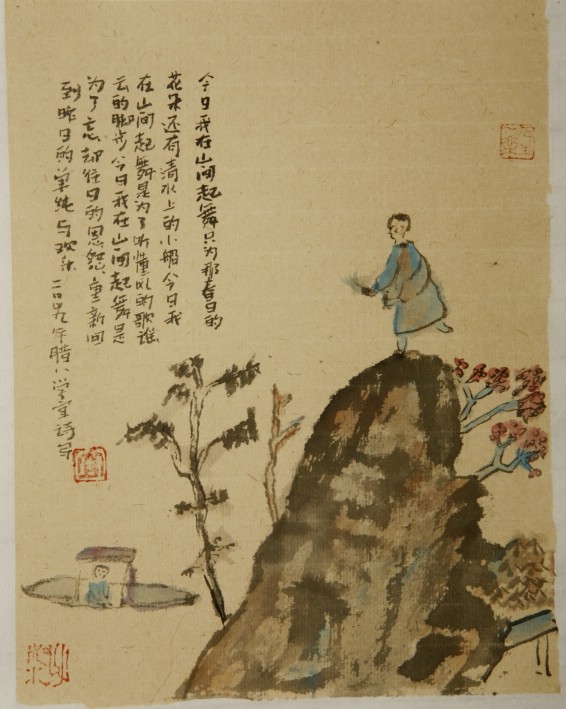 今日我在山间起舞只为那春日的
花朵还有清水上的小船今日我
在山间起舞是为了听懂风的歌谣
云的脚步今日我在山间起舞是
为了忘却往日的恩怨重新回
到昨日的单纯与欢乐 二〇〇九年腊八